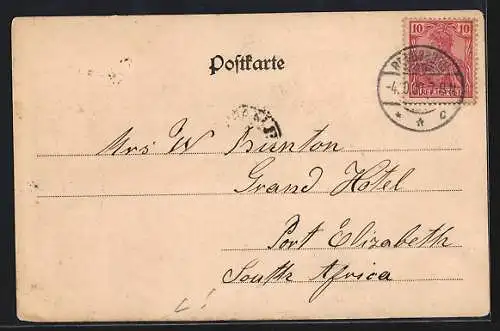 10 10
Postkarte
Mrs W Bunton
Grand Hotel
Port Elizabeth
South Africa